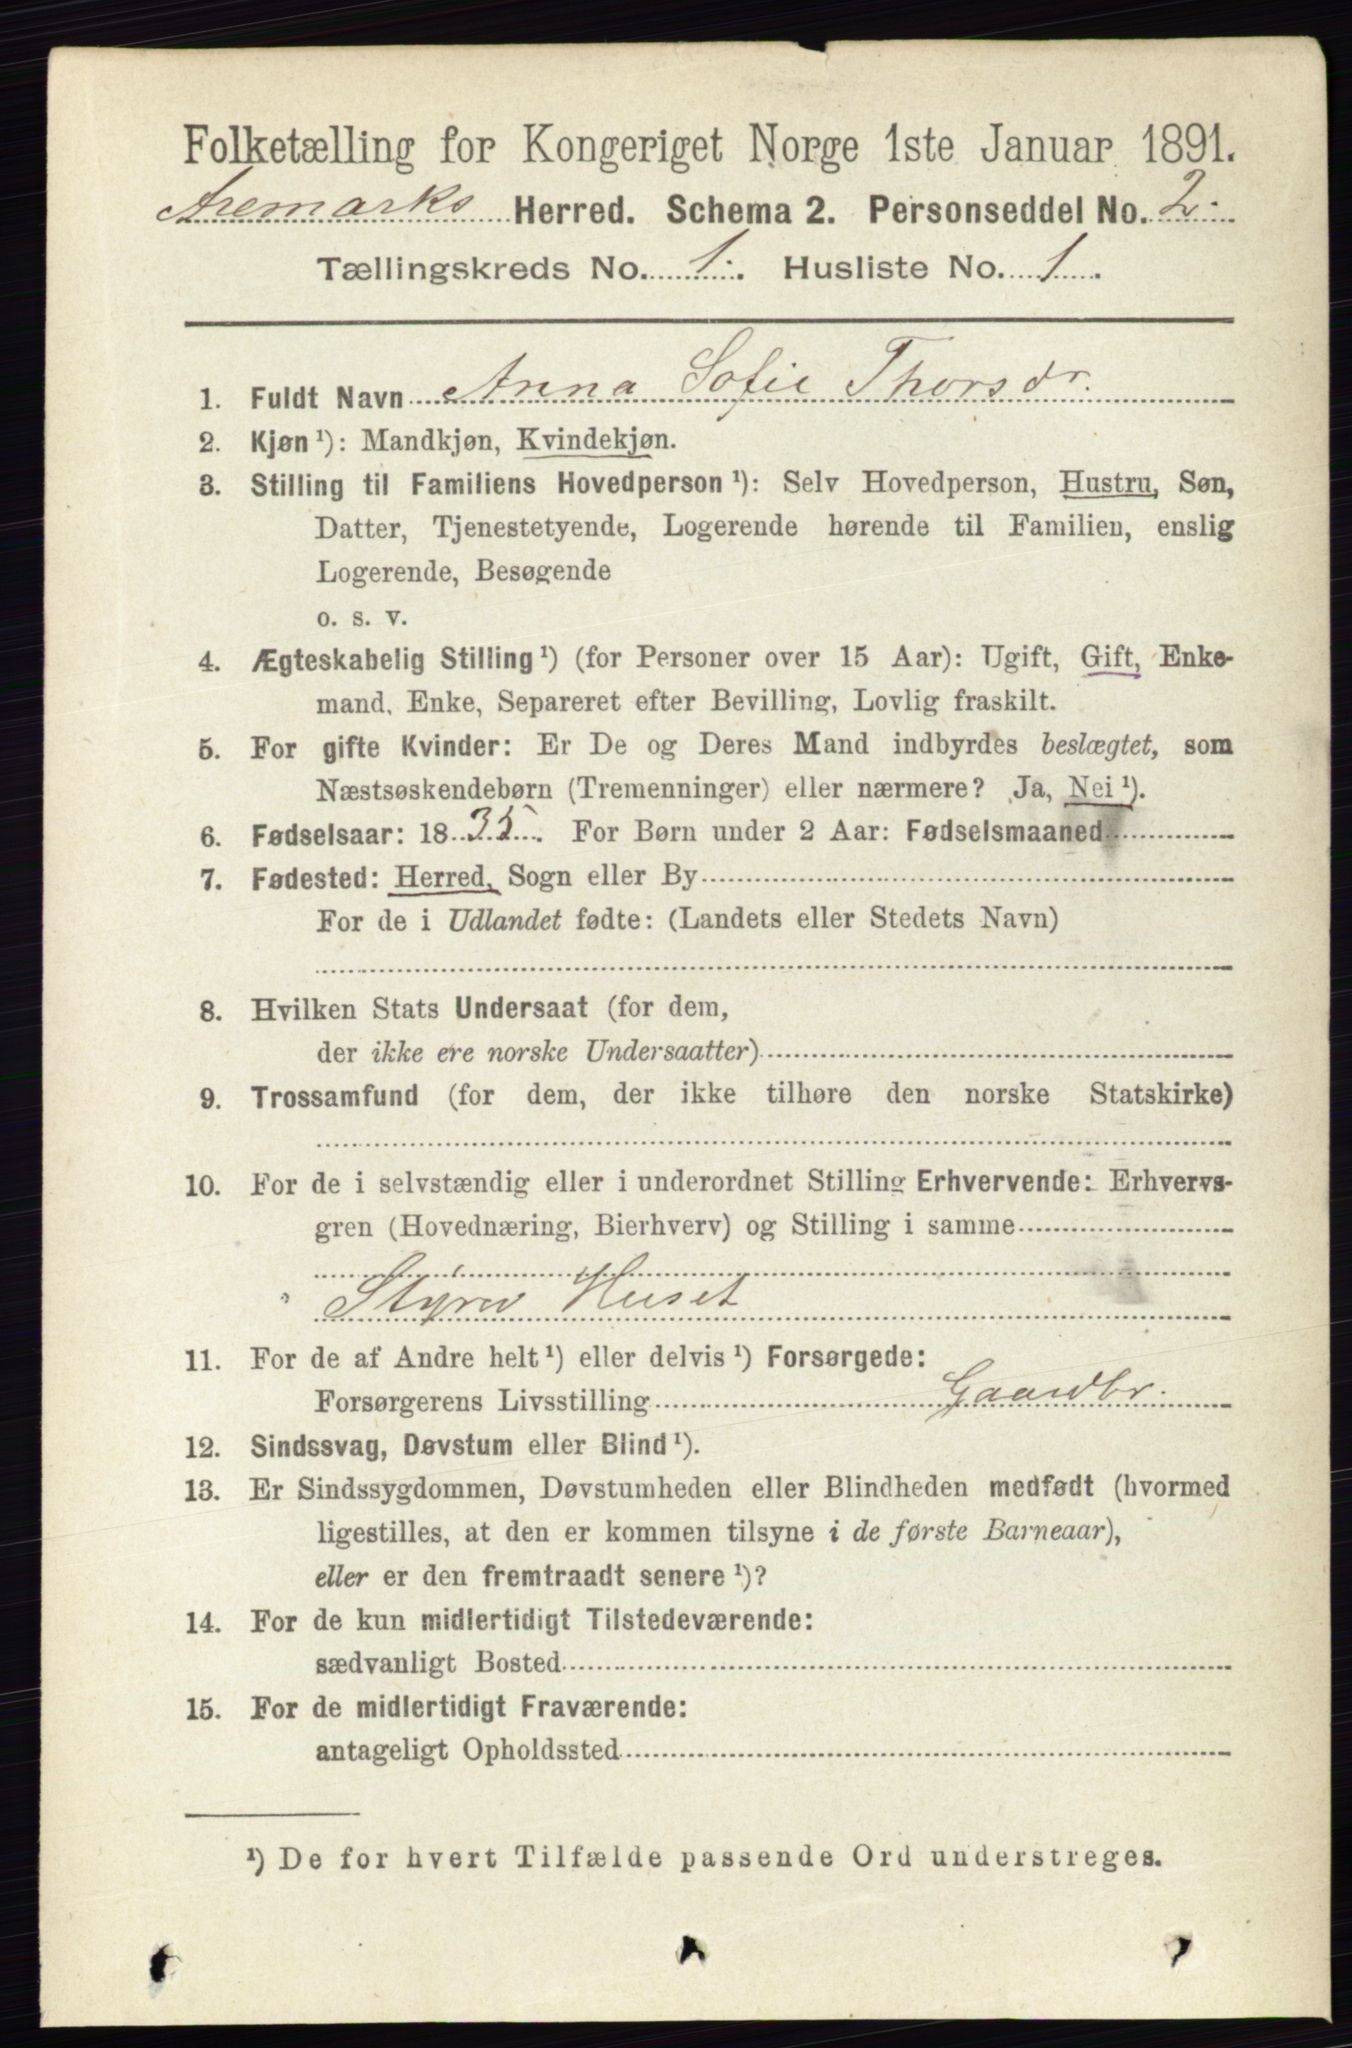 Folketælling for Kongeriget Norge 1ste Januar 1891.
Aremarks Herred. Schema 2. Personseddel No. 2.
Tællingskreds No. 1. Husliste No. 1.
1. Fuldt Navn Anna Sofie Thorsdr.
2. Kjøn ¹): Mandkjøn, Kvindekjøn.
3. Stilling til Familiens Hovedperson ¹): Selv Hovedperson, Hustru, Søn,
Datter, Tjenestetyende, Logerende hørende til Familien, enslig
Logerende, Besøgende
o. s. v.
4. Ægteskabelig Stilling ¹) (for Personer over 15 Aar): Ugift, Gift, Enke-
mand, Enke, Separeret efter Bevilling, Lovlig fraskilt.
5. For gifte Kvinder: Er De og Deres Mand indbyrdes beslægtet, som
Næstsøskendebørn (Tremenninger) eller nærmere? Ja, Nei ¹).
6. Fødselsaar: 1835. For Børn under 2 Aar: Fødselsmaaned
7. Fødested: Herred, Sogn eller By
For de i Udlandet fødte: (Landets eller Stedets Navn)
8. Hvilken Stats Undersaat (for dem,
der ikke ere norske Undersaatter)
9. Trossamfund (for dem, der ikke tilhøre den norske Statskirke)
10. For de i selvstændig eller i underordnet Stilling Erhvervende: Erhvervs-
gren (Hovednæring, Bierhverv) og Stilling i samme
Styrer Huset
11. For de af Andre helt ¹) eller delvis ¹) Forsørgede:
Forsørgerens Livsstilling Gaardbr.
12. Sindssvag, Døvstum eller Blind ¹).
13. Er Sindssygdommen, Døvstumheden eller Blindheden medfødt (hvormed
ligestilles, at den er kommen tilsyne i de første Barneaar),
eller er den fremtraadt senere ¹)?
14. For de kun midlertidigt Tilstedeværende:
sædvanligt Bosted
15. For de midlertidigt Fraværende:
antageligt Opholdssted
¹) De for hvert Tilfælde passende Ord understreges.